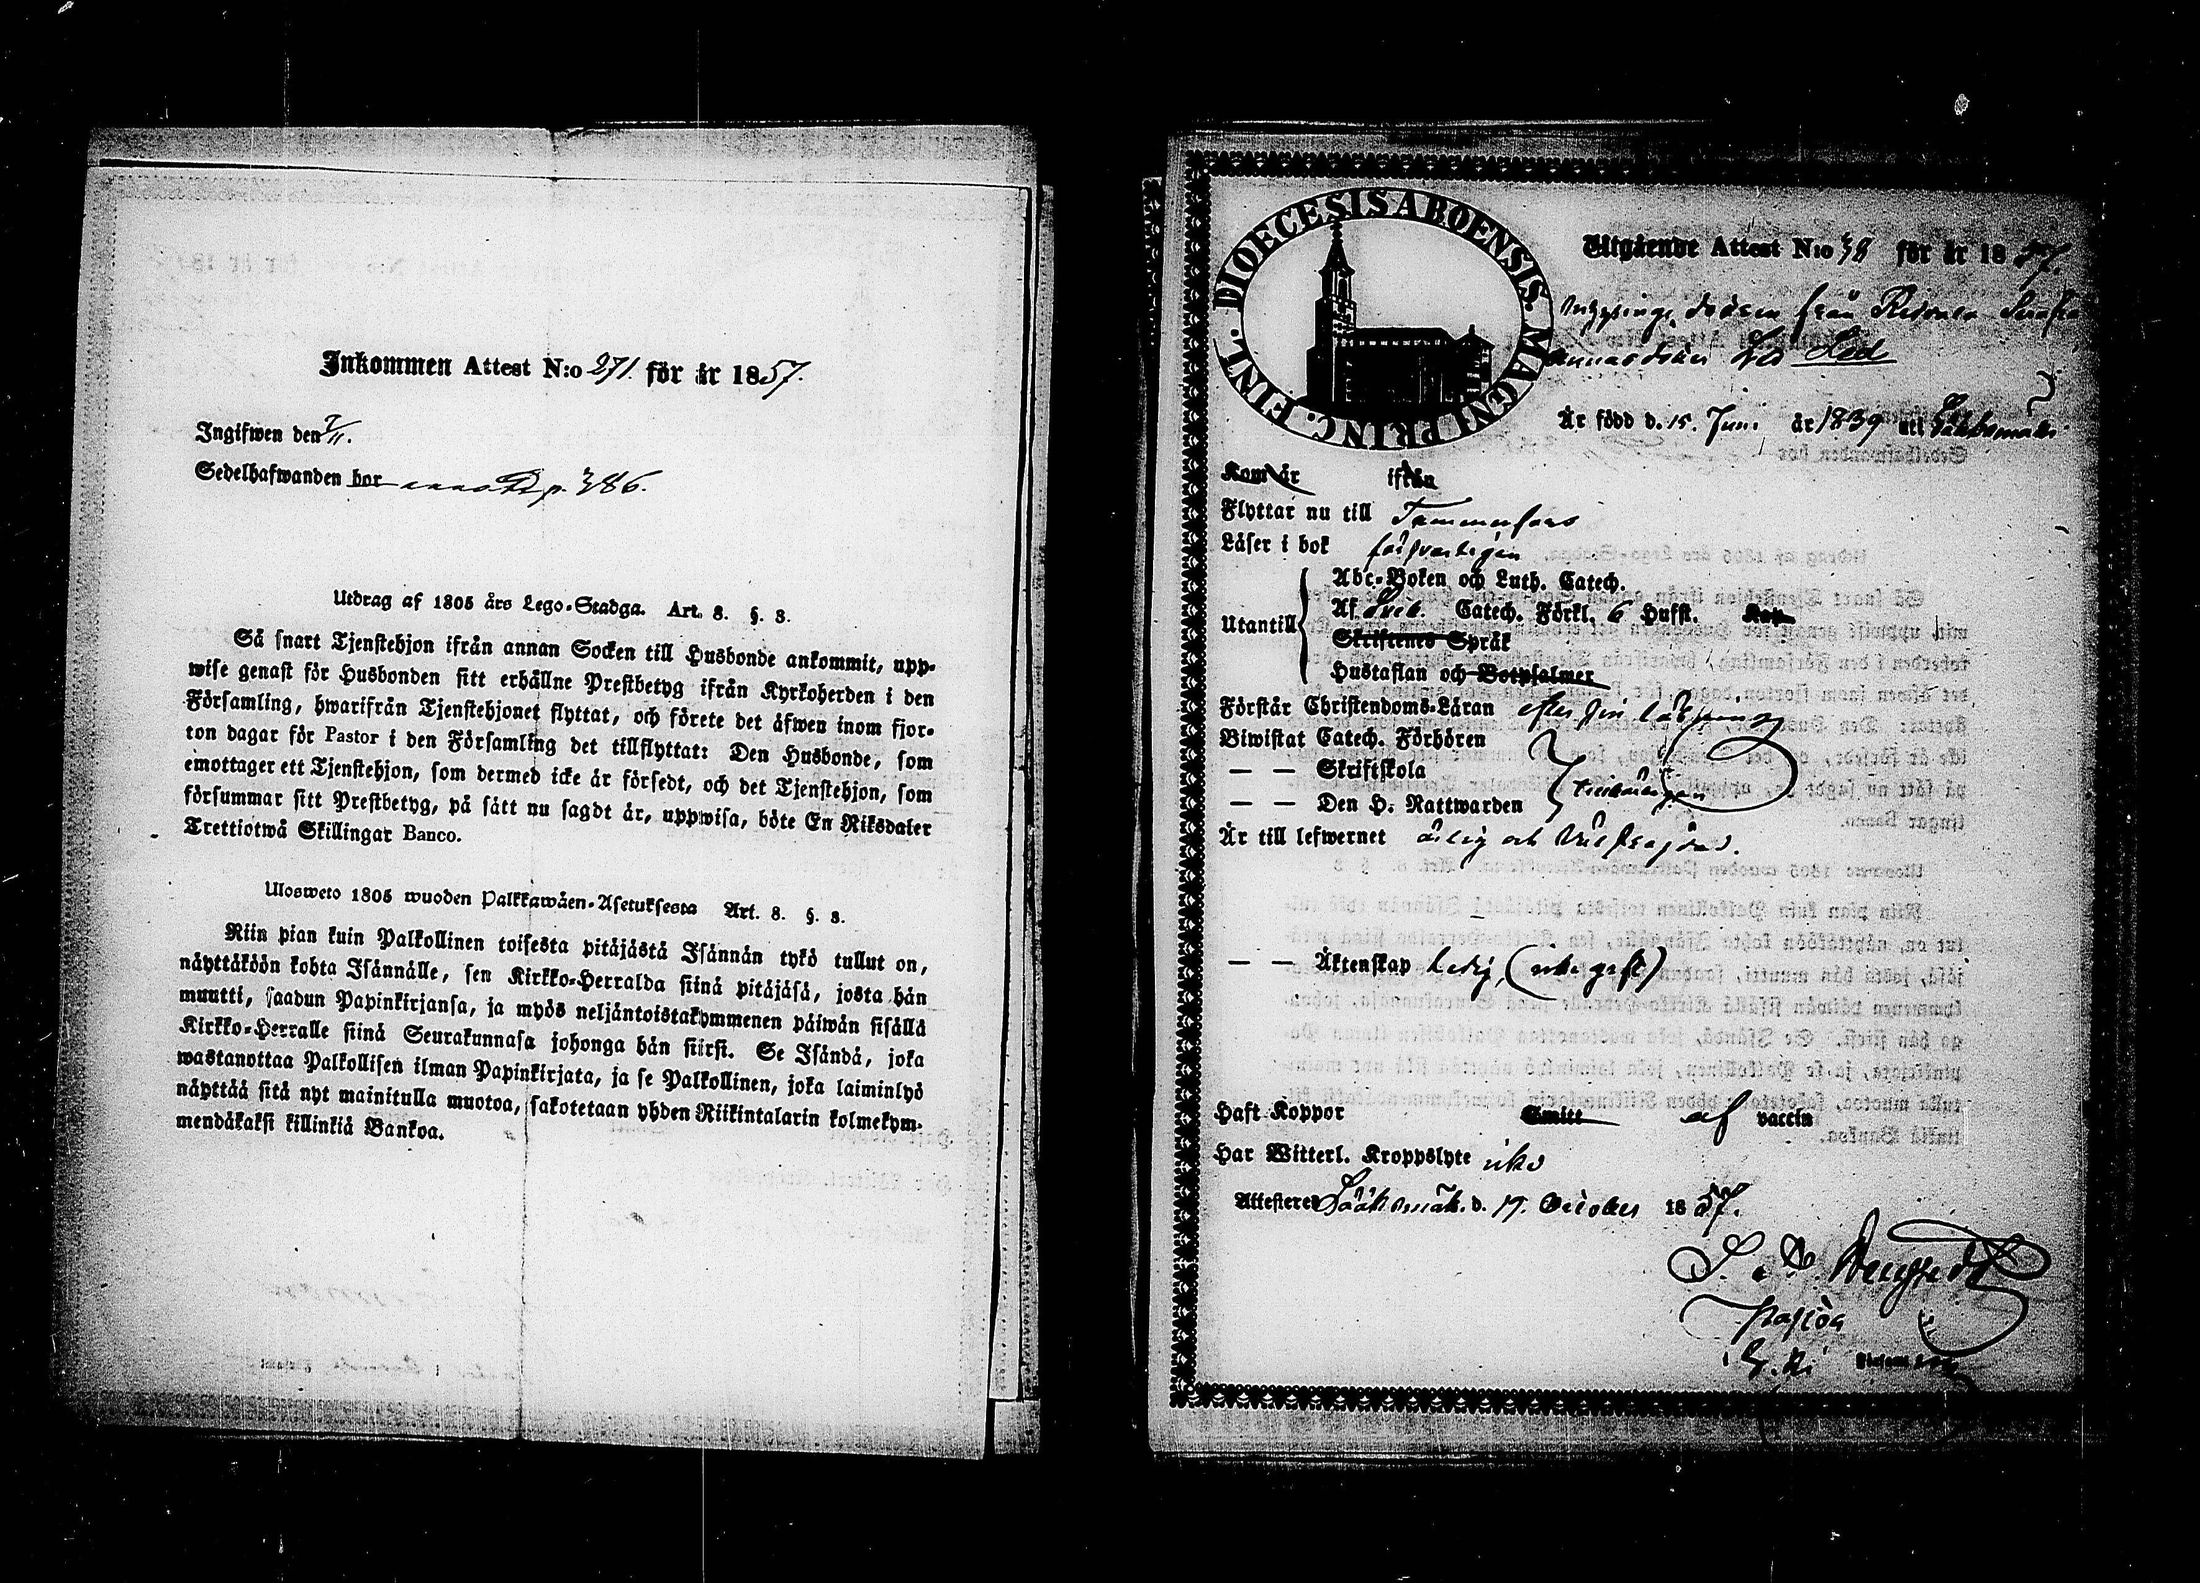 Inkommen Attest N:o 271. för år 1857.
Ingifwen den 7/11.
Sedelhafwanden bor p. 386.
Utdrag af 1805 års Lego-Stadga. Art. 8. §. 8.
Så snart Tjenstehjon ifrån annan Socken till Husbonde ankommit, upp-
wise genast för Husbonden sitt erhållne Prestbetyg ifrån Kyrkoherden i den
Församling, hwarifrån Tjenstehjonet flyttat, och förete det äfwen inom fjor-
ton dagar för Pastor i den Församling det tillflyttat: Den Husbonde, som
emottager ett Tjenstehjon, som dermed icke är försedt, och det Tjenstehjon, som
försummar sitt Prestbetyg, på sätt nu sagdt är, uppwisa, böte En Riksdaler
Trettiotwå Skillingar Banco.
Ulosweto 1805 wuoden Palkkawäen-Asetuksesta Art. 8. §. 8.
Niin pian kuin Palkollinen toisesta pitäjästä Isännän tykö tullut on,
näyttäköön kohta Isännälle, sen Kirkko-Herralda siinä pitäjäsä, josta hän
muutti, saadun Papinkirjansa, ja myös neljäntoistakymmenen päiwän sisällä
Kirkko-Herralle siinä Seurakunnasa johonga hän siirsi. Se Isändä, joka
wastanottaa Palkollisen ilman Papinkirjata, ja se Palkollinen, joka laiminlyö
näyttää sitä nyt mainitulla muotoa, sakotetaan yhden Riikintalarin kolmekym-
mendäkaksi killinkiä Bankoa.
DIOECESIS ABOENSIS. MAGNI PRINC. FINL.
Utgående Attest N:o 38 för år 1857.
från
Är född d. 15. Juni år 1839 uti Sääksmäki
Kom år ifrån
Flyttar nu till Tammerfors
Läser i bok försvarligen
Utantill
Abc-Boken och Luth. Catech.
Af Sveb. Catech. Förkl. 6 Hufst. Kap.
Skriftenes Språk
Hustaflan och Botpsalmer
Förstår Christendoms-Läran efter sin
Biwistat Catech. Förhören
— — Skriftskola
— — Den H. Nattwarden
Är till lefwernet ärlig och välfrejdad.
— — Äktenskap ledig, (icke gift)
Haft Koppor Smitt af vaccin
Har Witterl. Kroppslyte icke
Attesterar Sääksmäki d. 17. October 1857.